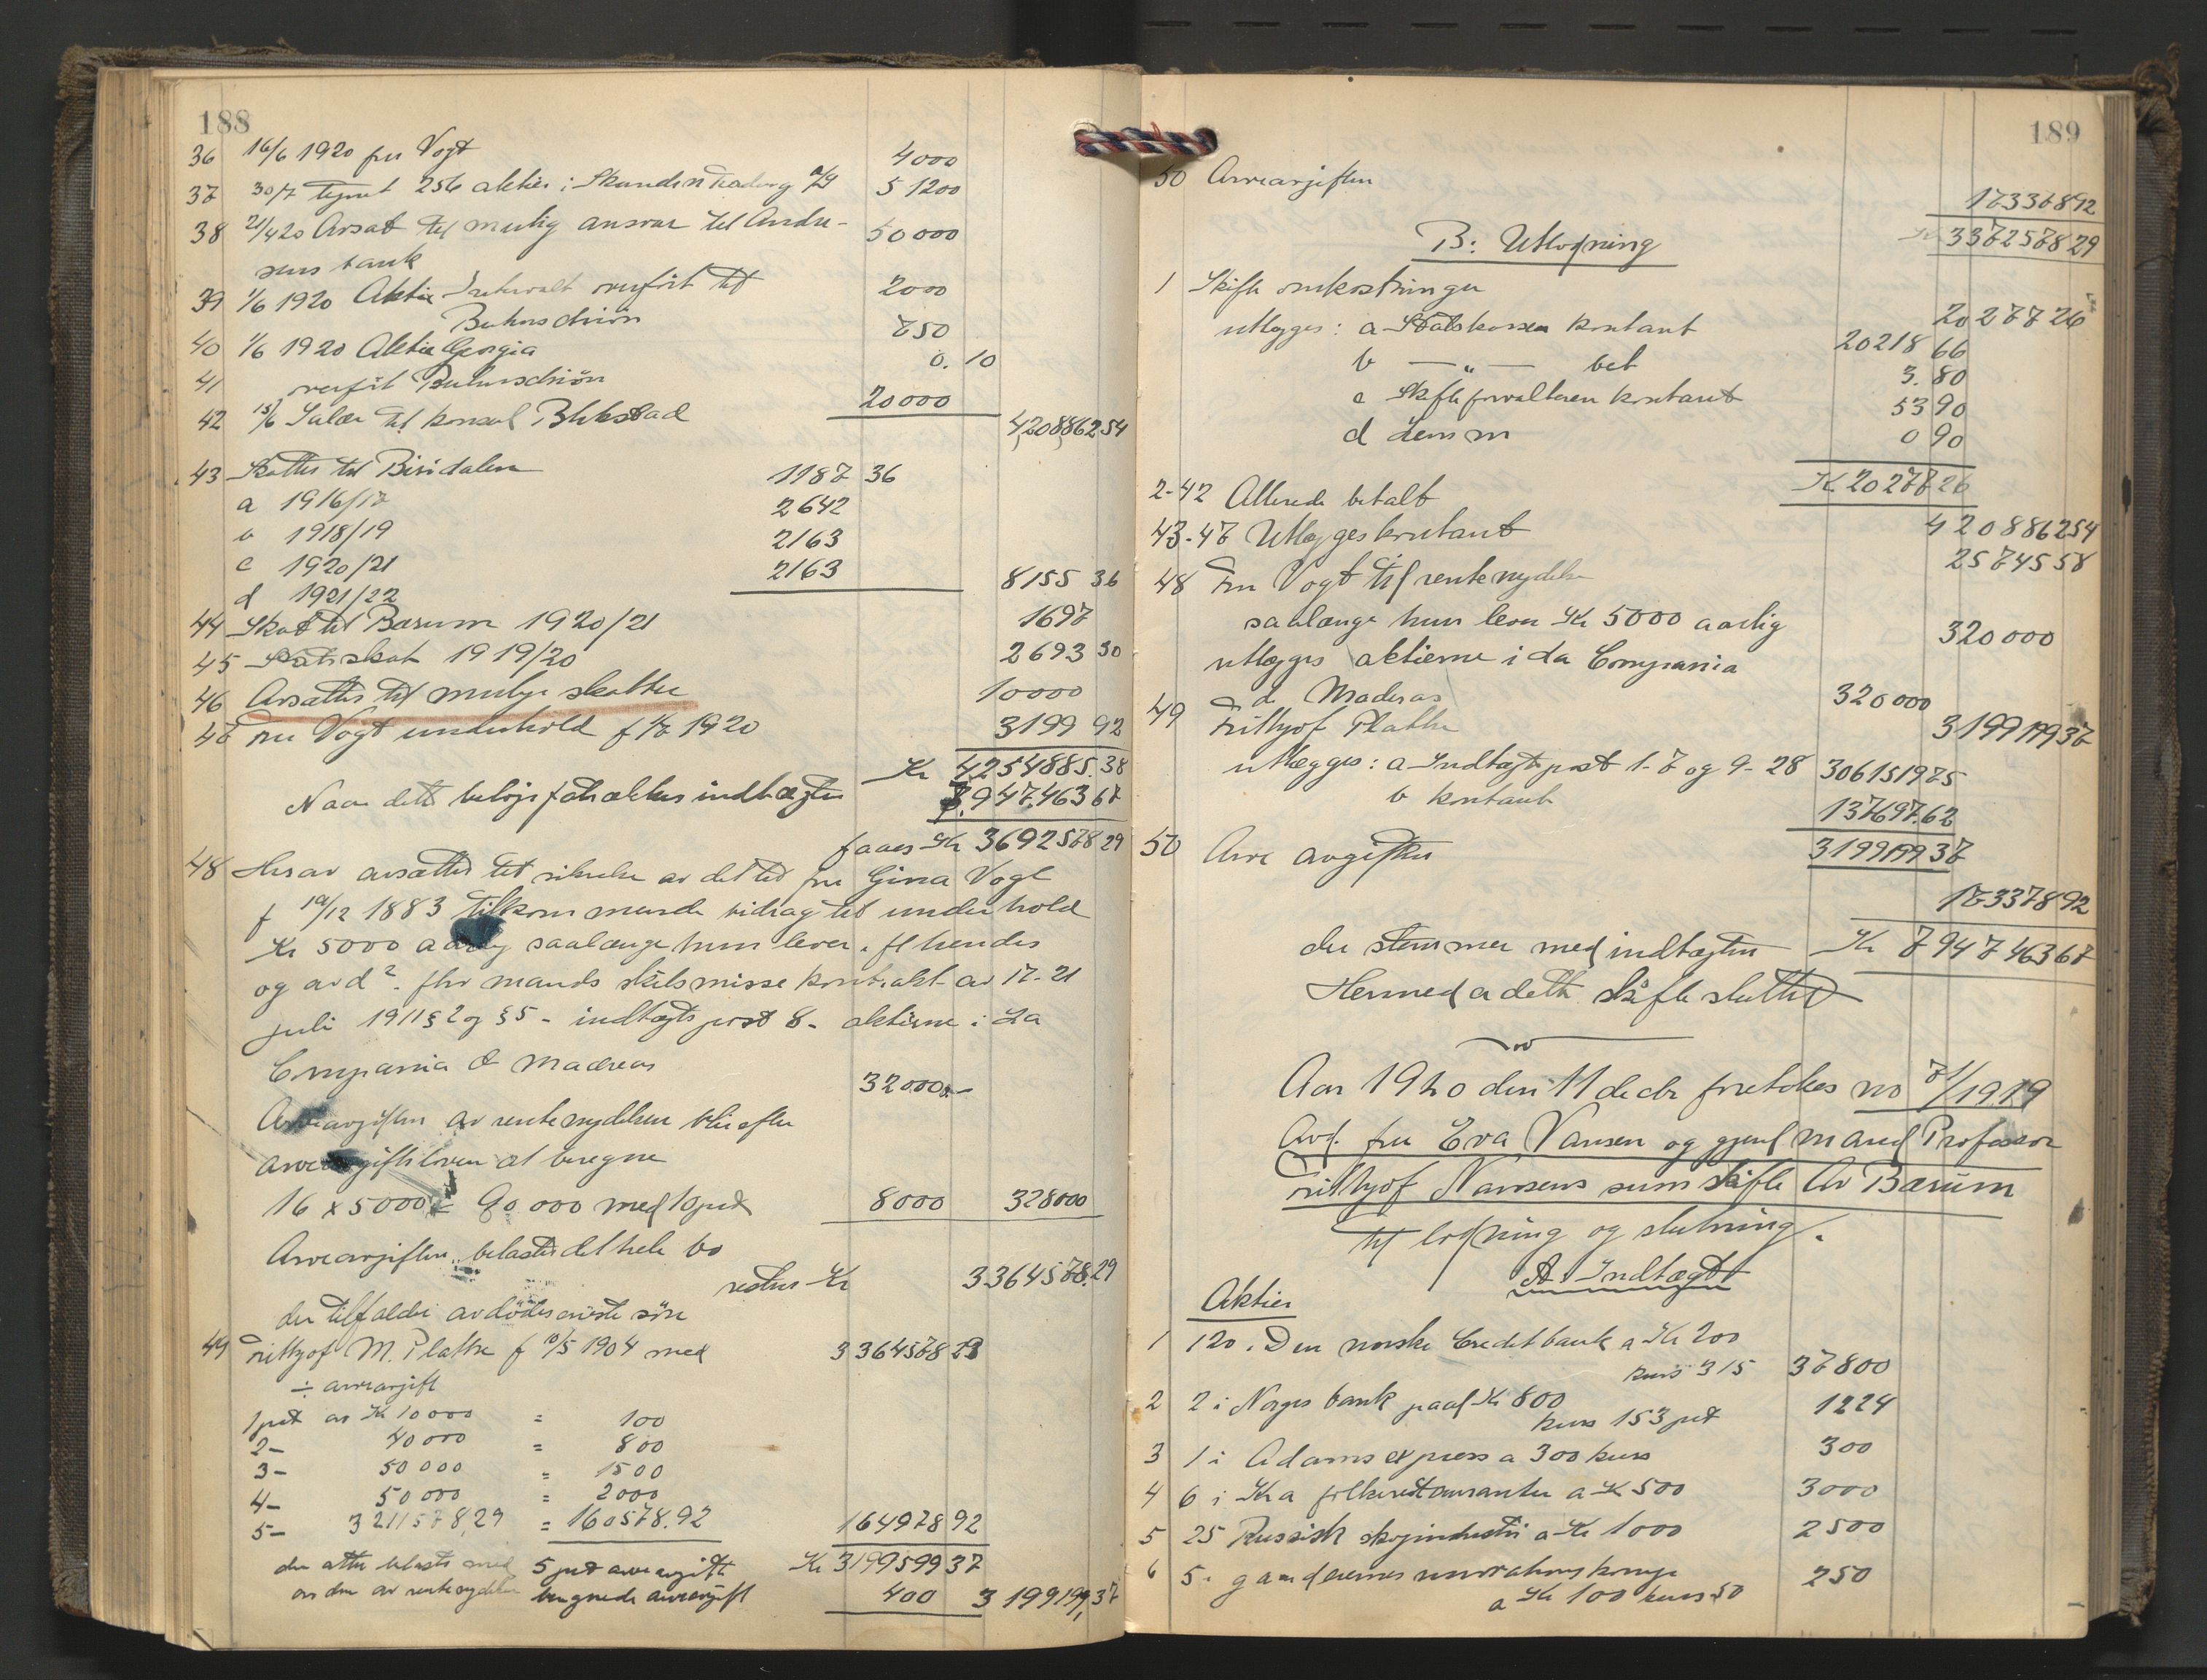 188
36 16/6 1920 fru Vogt 4000
37 30/7 Tegnet 256 aktier i Skandin Trading A/S 51200
38 21/4 20 Avsat til mulig ansvar til Andre- 50000
sens bank
39 1/6 1920 Aktie overført til 2000
40 1/6 1920 Aktie Georgia 750
41 overført 0.10
42 15/6 Salær til konsul 20000 4,208,862 54
43 Skatter til Biridalen
a 1916/17 1187 36
b 1918/19 2642
c 1920/21 2163
d 1921/22 2163 8155 36
44 Skat til Bærum 1920/21 1697
45 Statsskat 1919/20 2693 30
46 Avsættes til mulige skatter 10000
47 Fru Vogt underhold f 1/7 1920 3199 92
Kr 4254885.38
Naar dette beløp fratrækkes indtægten 7.947.463 67
faaes Kr 3692578 29
48 Herav avsættes til sikkelse av det til fru Gina Vogt
f 19/12 1883 tilkommende bidrag til underhold
Kr 5000 aarlig saalænge hun lever. fl hendes
og avd? fhv mands skilsmisse kontrakt av 17-21
juli 1911 § 2 og § 5 - indtægts post 8 - aktierne i La
Compania de Maderas 32000.-
Arveavgiften av rentenydelsen blir efter
arveavgiftsloven at beregne
16 x 5000 = 80000 med 10 pct 8000 328000
Arveavgiften belastes det hele bo
resten Kr 3364578.29
der tilfalder avdødes eneste søn
49 Frithjof M. Plathe f 10/5 1904 med 3364578 29
÷ arveavgift
1 pct av Kr 10000 = 100
2 - 40000 = 800
3 - 50000 = 1500
4 - 50000 = 2000
5 - 3211578,29 = 160578.92 164978 92
der atter belastes med 5 pct arveavgift Kr 3199599 37
av den av rentenydelsen beregnede arveavgift 400 3199199,37
189
50 Arveavgiften 173378 92
Kr 3372578 29
B: Utlodning
1 Skifte omkostninger 20277 26
utlægges: a Statskassen kontant 20218 66
b — " — bet 3.80
c Skifteforvalteren kontant 53 90
d samm 0 90
Kr 20277 26
2-42 Allerede betalt 4208862 54
43-47 Utlægges kontant 25745 58
48 Fru Vogt til rentenydelse
saalænge hun lever Kr 5000 aarlig 320000
utlægges aktierne i La Compania
de Maderas 320000
49 Frithjof Plathe 3199199 37
utlægges: a Indtægtspost 1-7 og 9-28 3061519 75
b kontant 137697.62
3199199 37
50 Arve avgiften 173378 92
der stemmer med indtægten Kr 7947463 67
Hermed er dette skifte sluttet
Aar 1920 den 11 decbr foretokes no 71/1919
Avd. fru Eva Nansen og gjenl mand Professor
Fridtjof Nansens sam skifte av Bærum
til lodning og slutning.
A. Indtægt
Aktier
1 120. Den norske Creditbank a Kr 200
kurs 315 37800
2 2 i Norges bank paal Kr 800
kurs 153 pct 1224
3 1 i Adams express a 300 kurs 300
4 6 i Kra folkerestauranter a Kr 500 3000
5 25 Russisk skogindustri a Kr 1000 2500
6 5.
a Kr 100 kurs 50 250